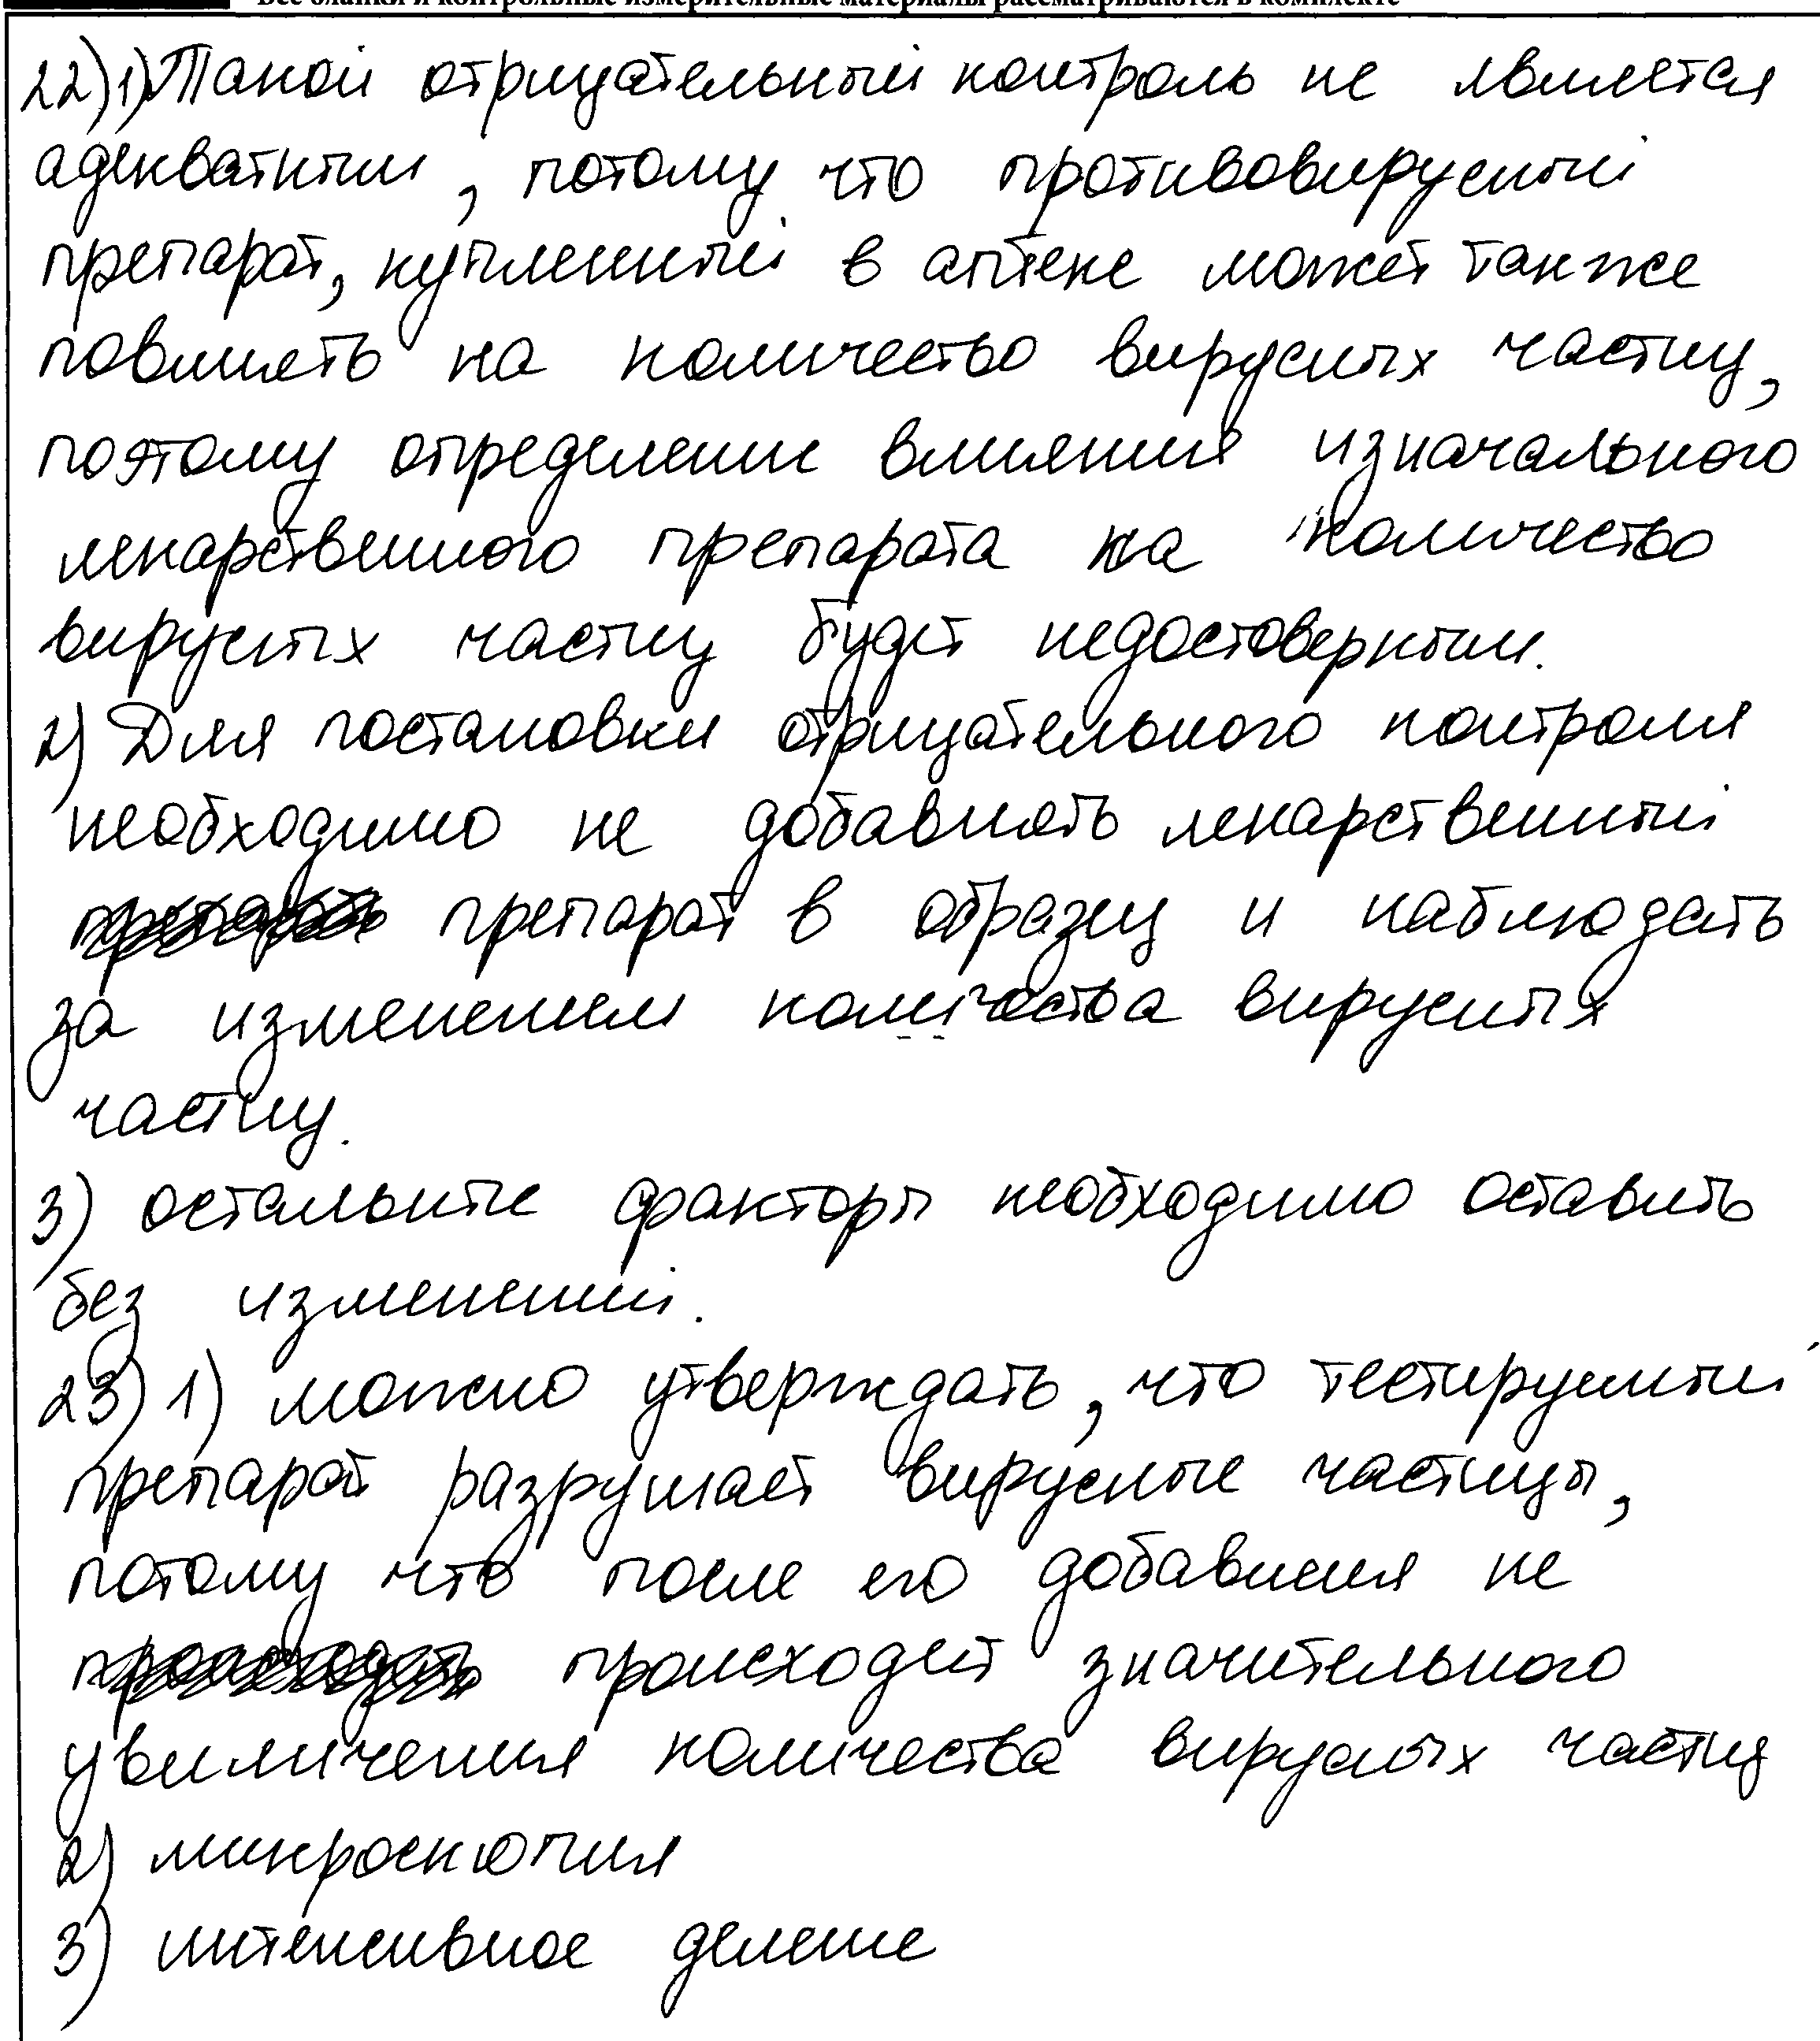 Все бланки и контрольные измерительные материалы рассматриваются в комплекте
22) 1) Такой отрицательный контроль не является
адекватным, потому что противовирусный
препарат, купленный в аптеке может также
повлиять на количество вирусных частиц,
поэтому определение влияния изначального
лекарственного препарата на количество
вирусных частиц будет недостоверным.
2) Для постановки отрицательного контроля
необходимо не добавлять лекарственный
препарат в образец и наблюдать
за изменением количества вирусных
частиц.
3) остальные факторы необходимо оставить
без изменений.
23) 1) можно утверждать, что тестируемый
препарат разрушает вирусные частицы,
потому что после его добавления не
происходит значительного
увеличения количества вирусных частиц
2) микроскопия
3) интенсивное деление